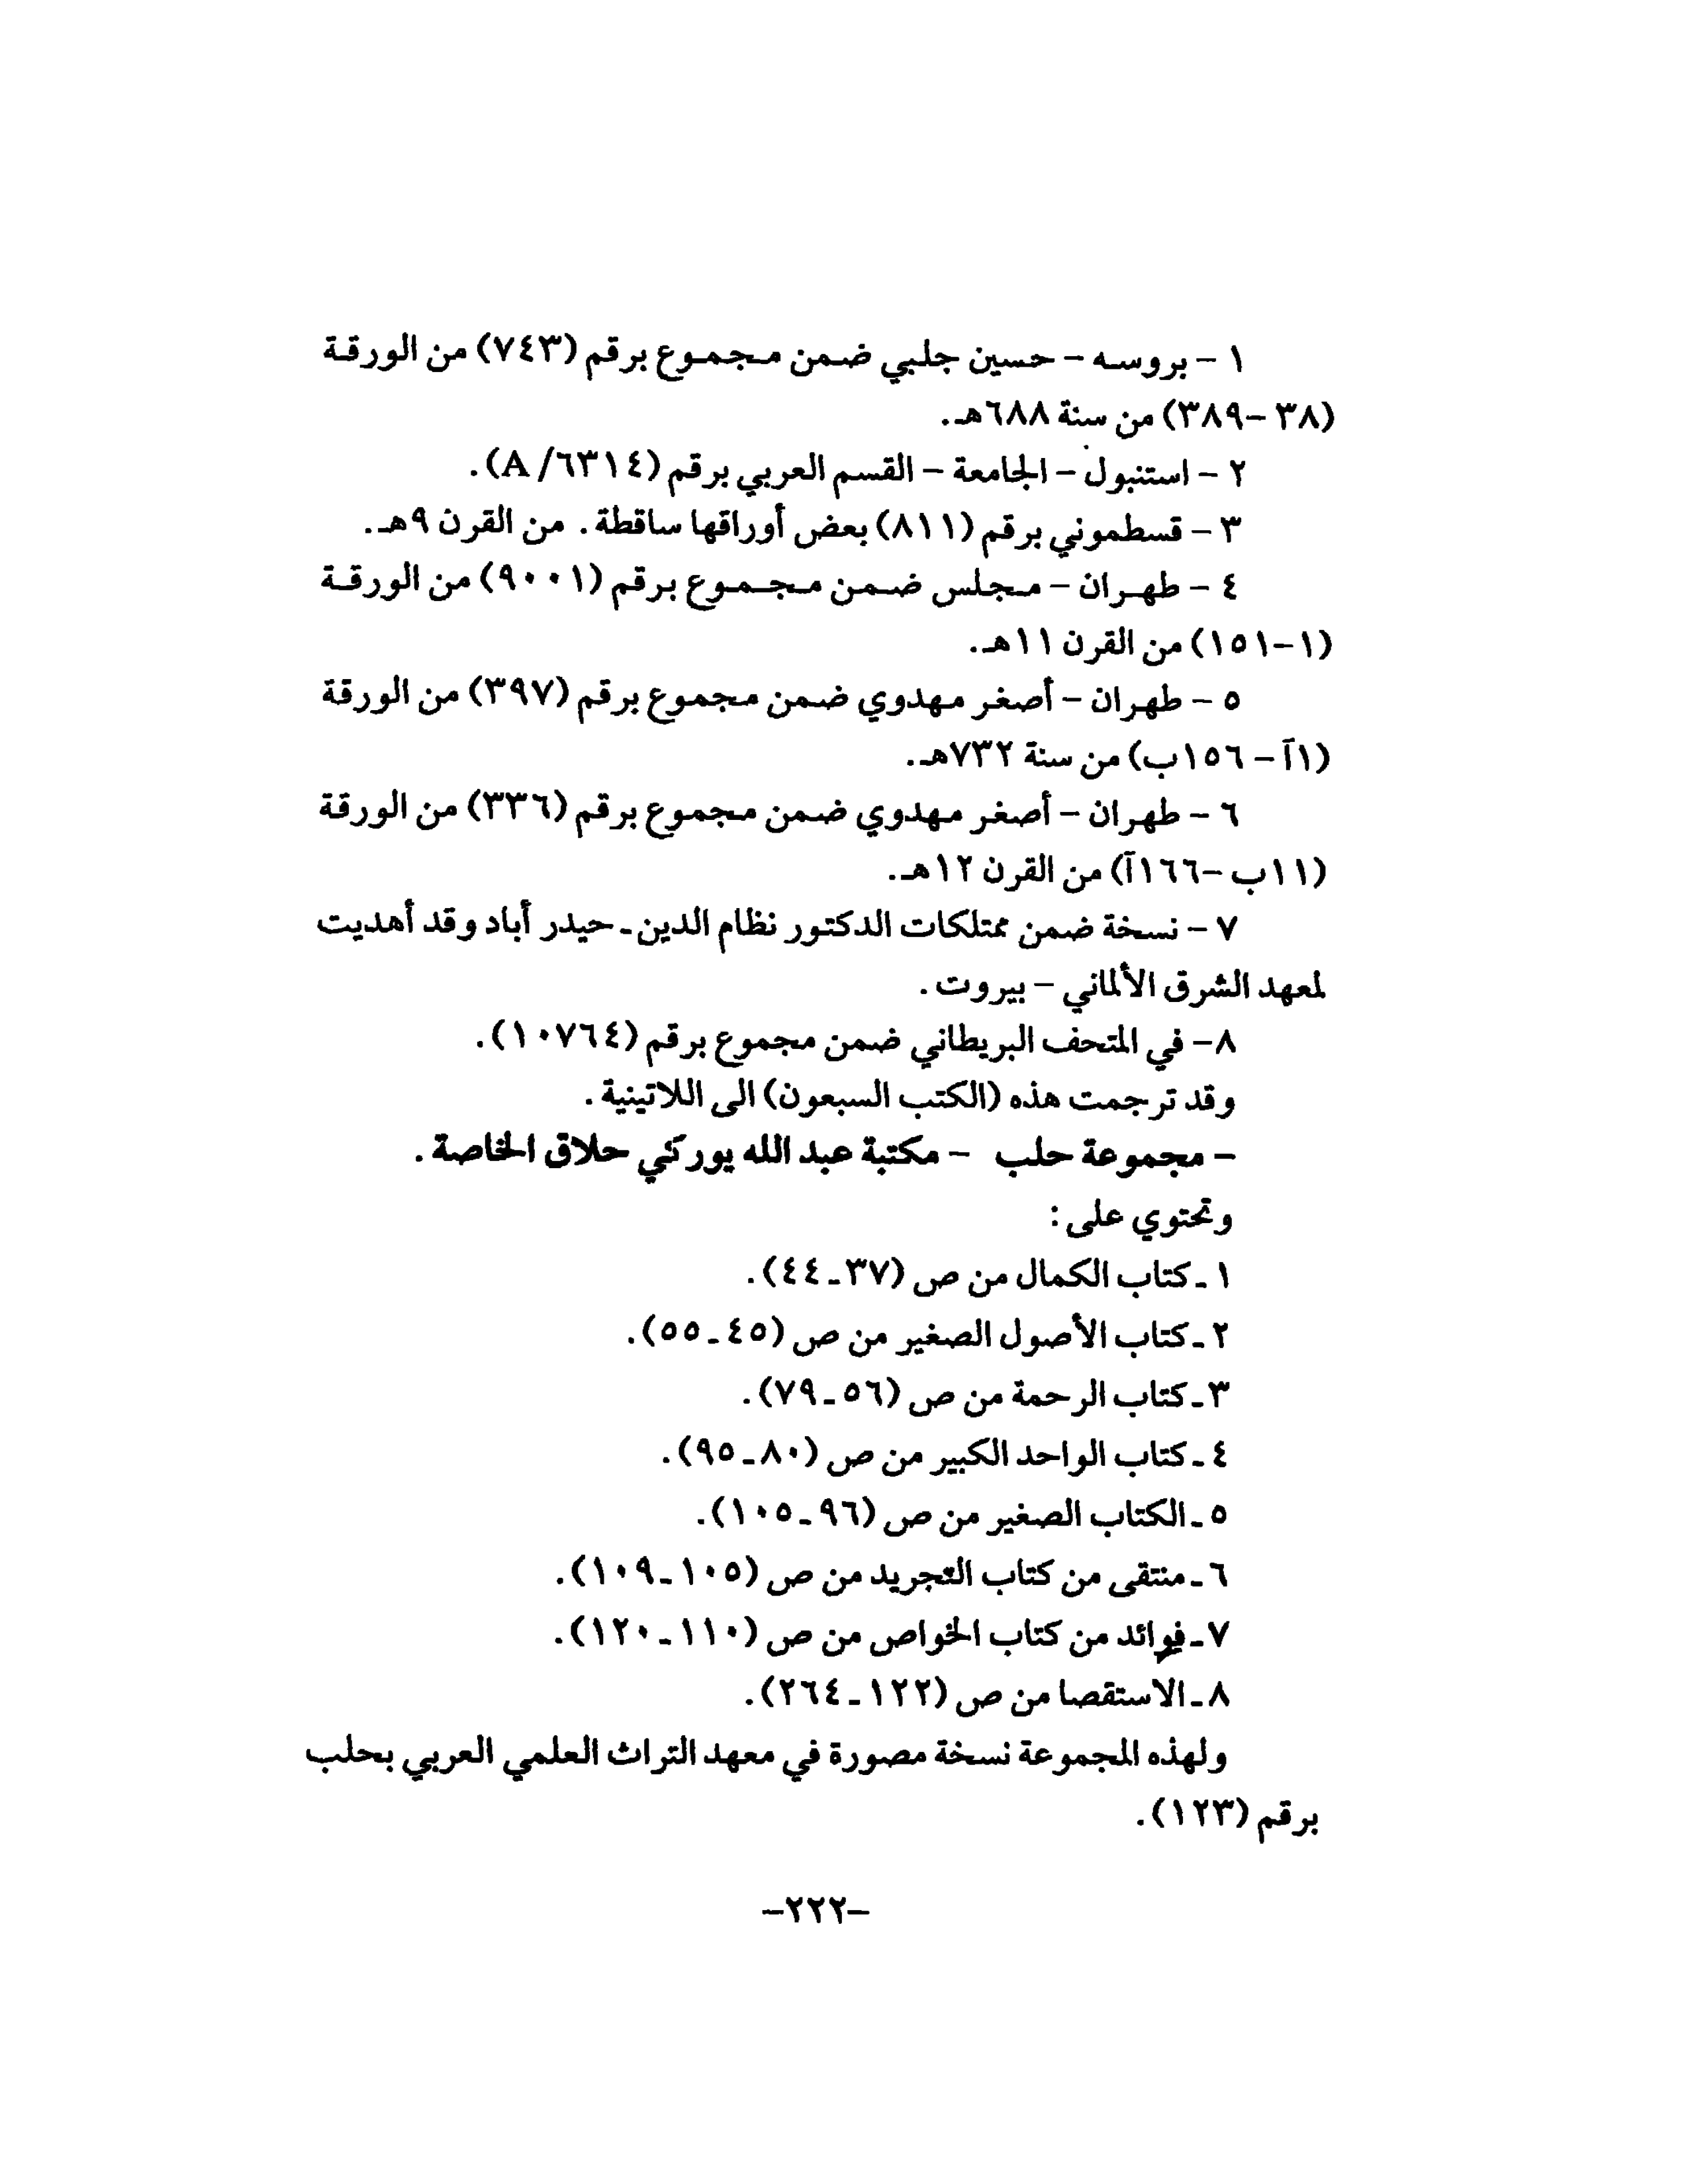 ١ – بروسه – حسين جلبي ضمن مجموع برقم (٧٤٣) من الورقة
(٣٨ –٣٨٩) من سنة ٦٨٨هـ.
٢ – استنبول – الجامعة – القسم العربي برقم (٦٣١٤/ A).
٣ – قسطموني برقم (٨١١) بعض أوراقها ساقطة. من القرن ٩هـ.
٤ – طهران – مجلس ضمن مجموع برقم (٩٠٠١) من الورقة
(١–١٥١) من القرن ١١هـ.
٥ – طهران – أصغر مهدوي ضمن مجموع برقم (٣٩٧) من الورقة
(١آ – ١٥٦ب) من سنة ٧٣٢هـ.
٦ – طهران – أصغر مهدوي ضمن مجموع برقم (٣٣٦) من الورقة
(١١ب –١٦٦آ) من القرن ١٢هـ.
٧ – نسخة ضمن ممتلكات الدكتور نظام الدين - حيدر أباد وقد أهديت
لمعهد الشرق الألماني – بيروت.
٨– في المتحف البريطاني ضمن مجموع برقم (١٠٧٦٤).
وقد ترجمت هذه (الكتب السبعون) الى اللاتينية.
– مجموعة حلب – مكتبة عبد الله يوركي حلاق الخاصة.
وتحتوي على:
١ - كتاب الكمال من ص (٣٧-٤٤).
٢ - كتاب الأصول الصغير من ص (٤٥-٥٥).
٣ - كتاب الرحمة من ص (٥٦-٧٩).
٤ - كتاب الواحد الكبير من ص (٨٠-٩٥).
٥ - الكتاب الصغير من ص (٩٦-١٠٥).
٦ - منتقى من كتاب التجريد من ص (١٠٥-١٠٩).
٧ - فوائد من كتاب الخواص من ص (١١٠-١٢٠).
٨ - الاستقصا من ص (١٢٢-٢٦٤).
ولهذه المجموعة نسخة مصورة في معهد التراث العلمي العربي بحلب
برقم (١٢٣).
–٢٢٢–